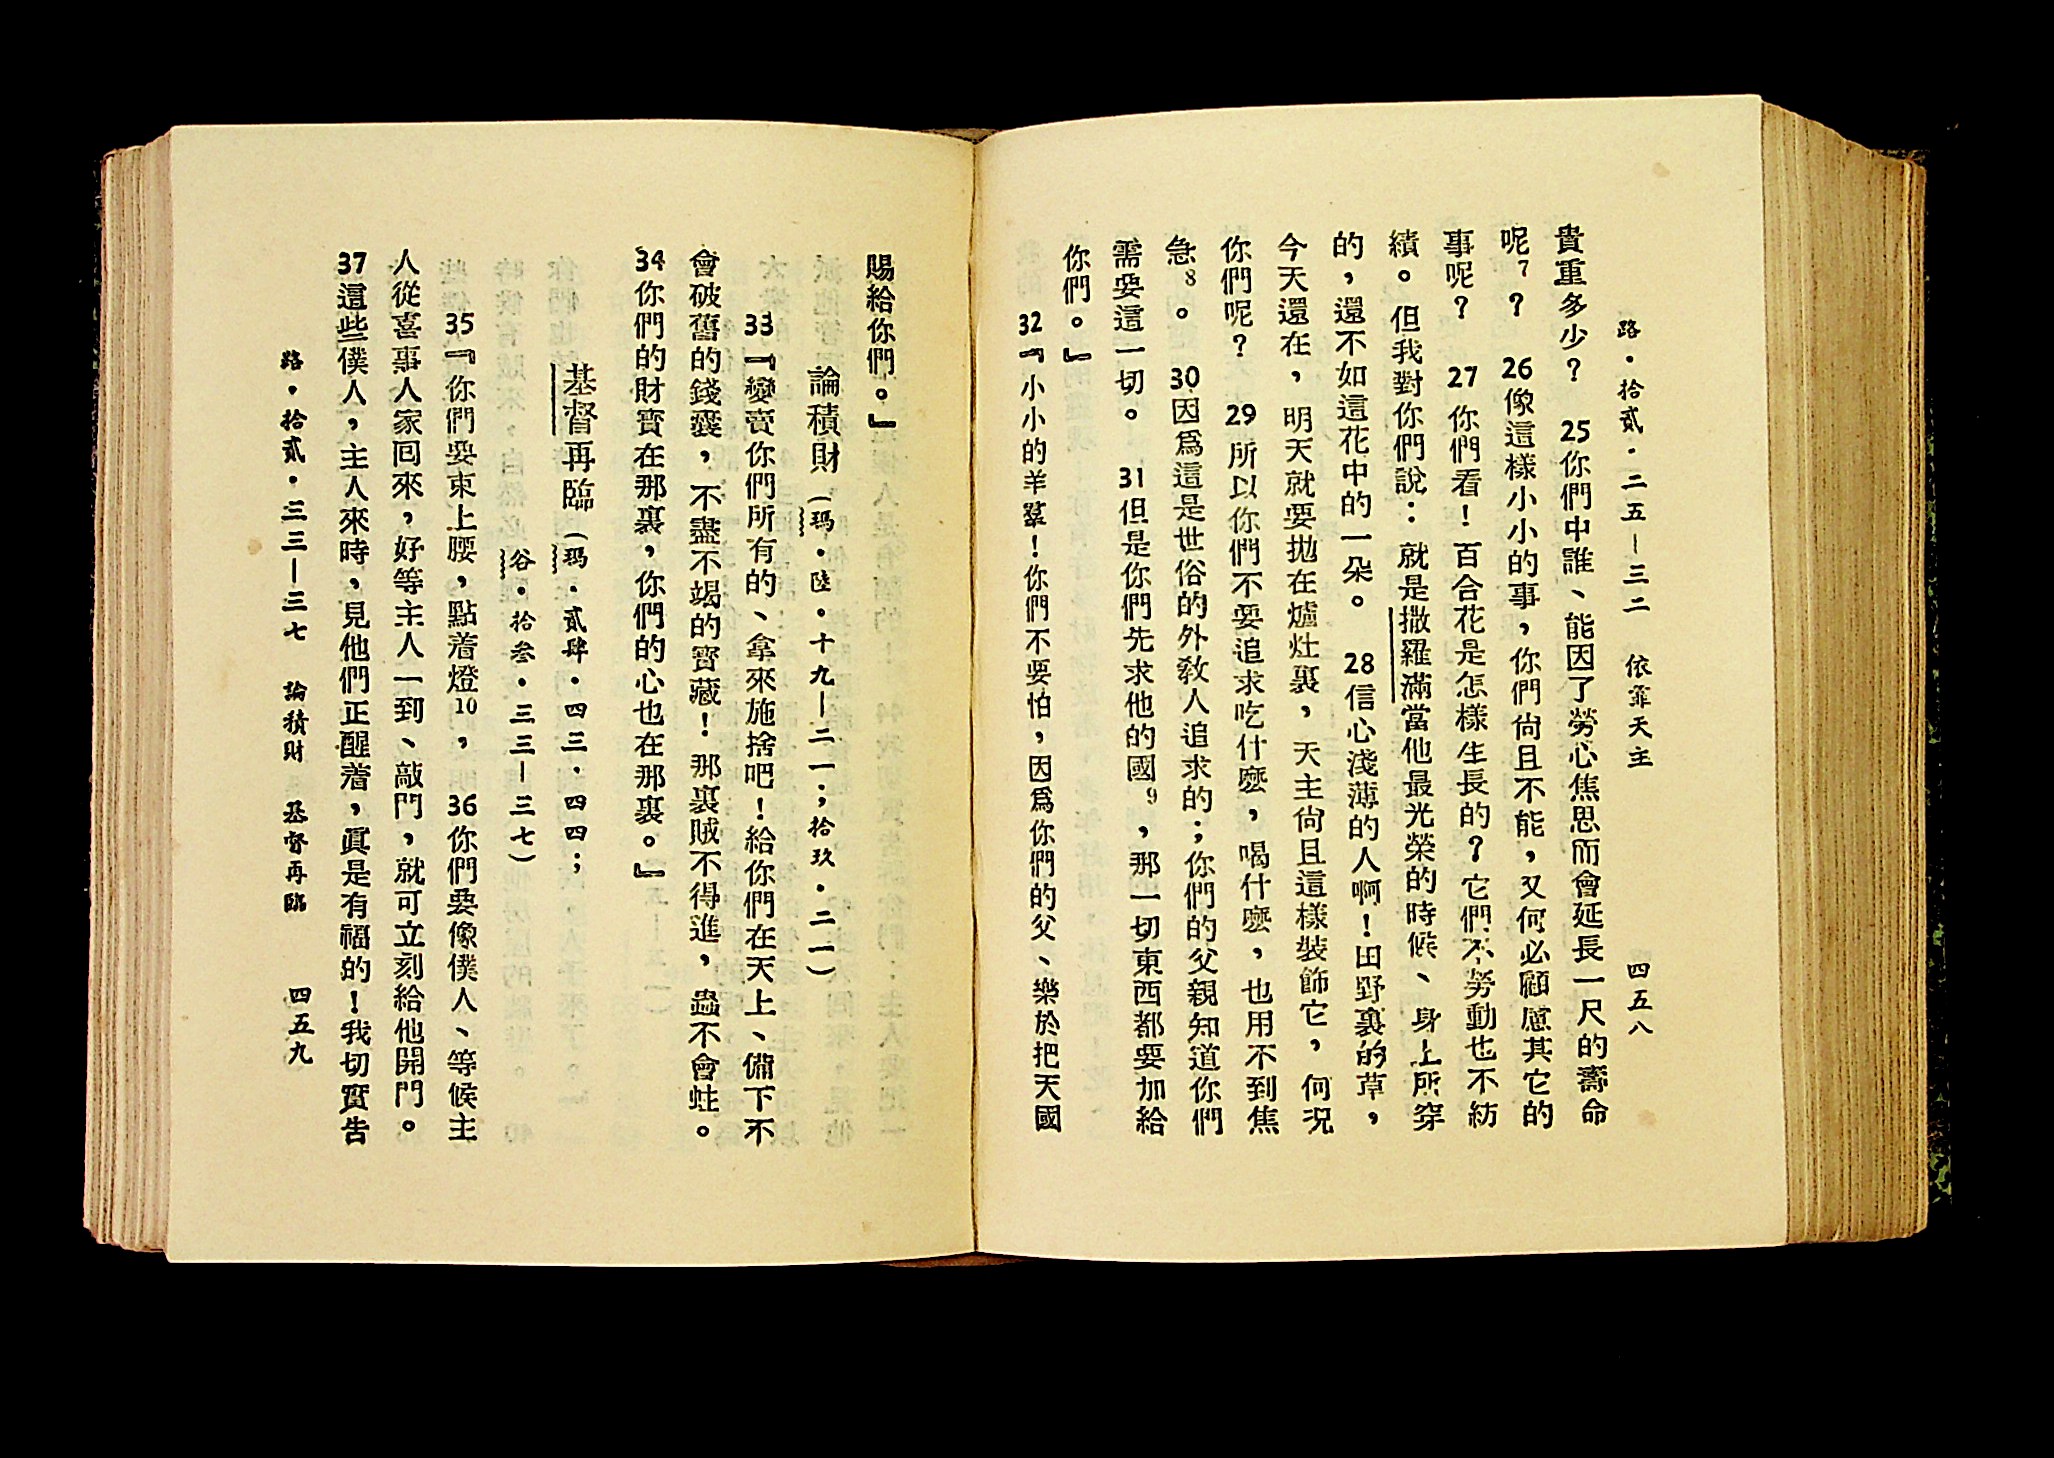 路·拾貳·二五—三二 依靠天主 四五八
貴重多少? 25你們中誰、能因了勞心焦思而會延長一尺的壽命
呢7? 26像這樣小小的事,你們尙且不能,又何必顧慮其它的
事呢? 27你們看!百合花是怎樣生長的?它們不勞動也不紡
績。但我對你們說:就是撒羅滿當他最光榮的時候、身上所穿
的,還不如這花中的一朵。 28信心淺薄的人啊!田野裏的草,
今天還在,明天就要拋在爐灶裏,天主尙且這樣裝飾它,何況
你們呢? 29所以你們不要追求吃什麼,喝什麼,也用不到焦
急8。 30因爲這是世俗的外敎人追求的;你們的父親知道你們
需要這一切。 31但是你們先求他的國9,那一切東西都要加給
你們。』
32『小小的羊羣!你們不要怕,因爲你們的父、樂於把天國
賜給你們。』
論積財(瑪·陸·十九—二一;拾玖·二一)
33『變賣你們所有的、拿來施捨吧!給你們在天上、備下不
會破舊的錢囊,不盡不竭的寶藏!那裏賊不得進,蟲不會蛀。
34你們的財寶在那裏,你們的心也在那裏。』
基督再臨(瑪·貳肆·四三·四四;
谷·拾叁·三三—三七)
35『你們要束上腰,點着燈10, 36你們要像僕人、等候主
人從喜事人家回來,好等主人一到、敲門,就可立刻給他開門。
37這些僕人,主人來時,見他們正醒着,眞是有福的!我切實告
路·拾貳·三三—三七 論積財 基督再臨 四五九